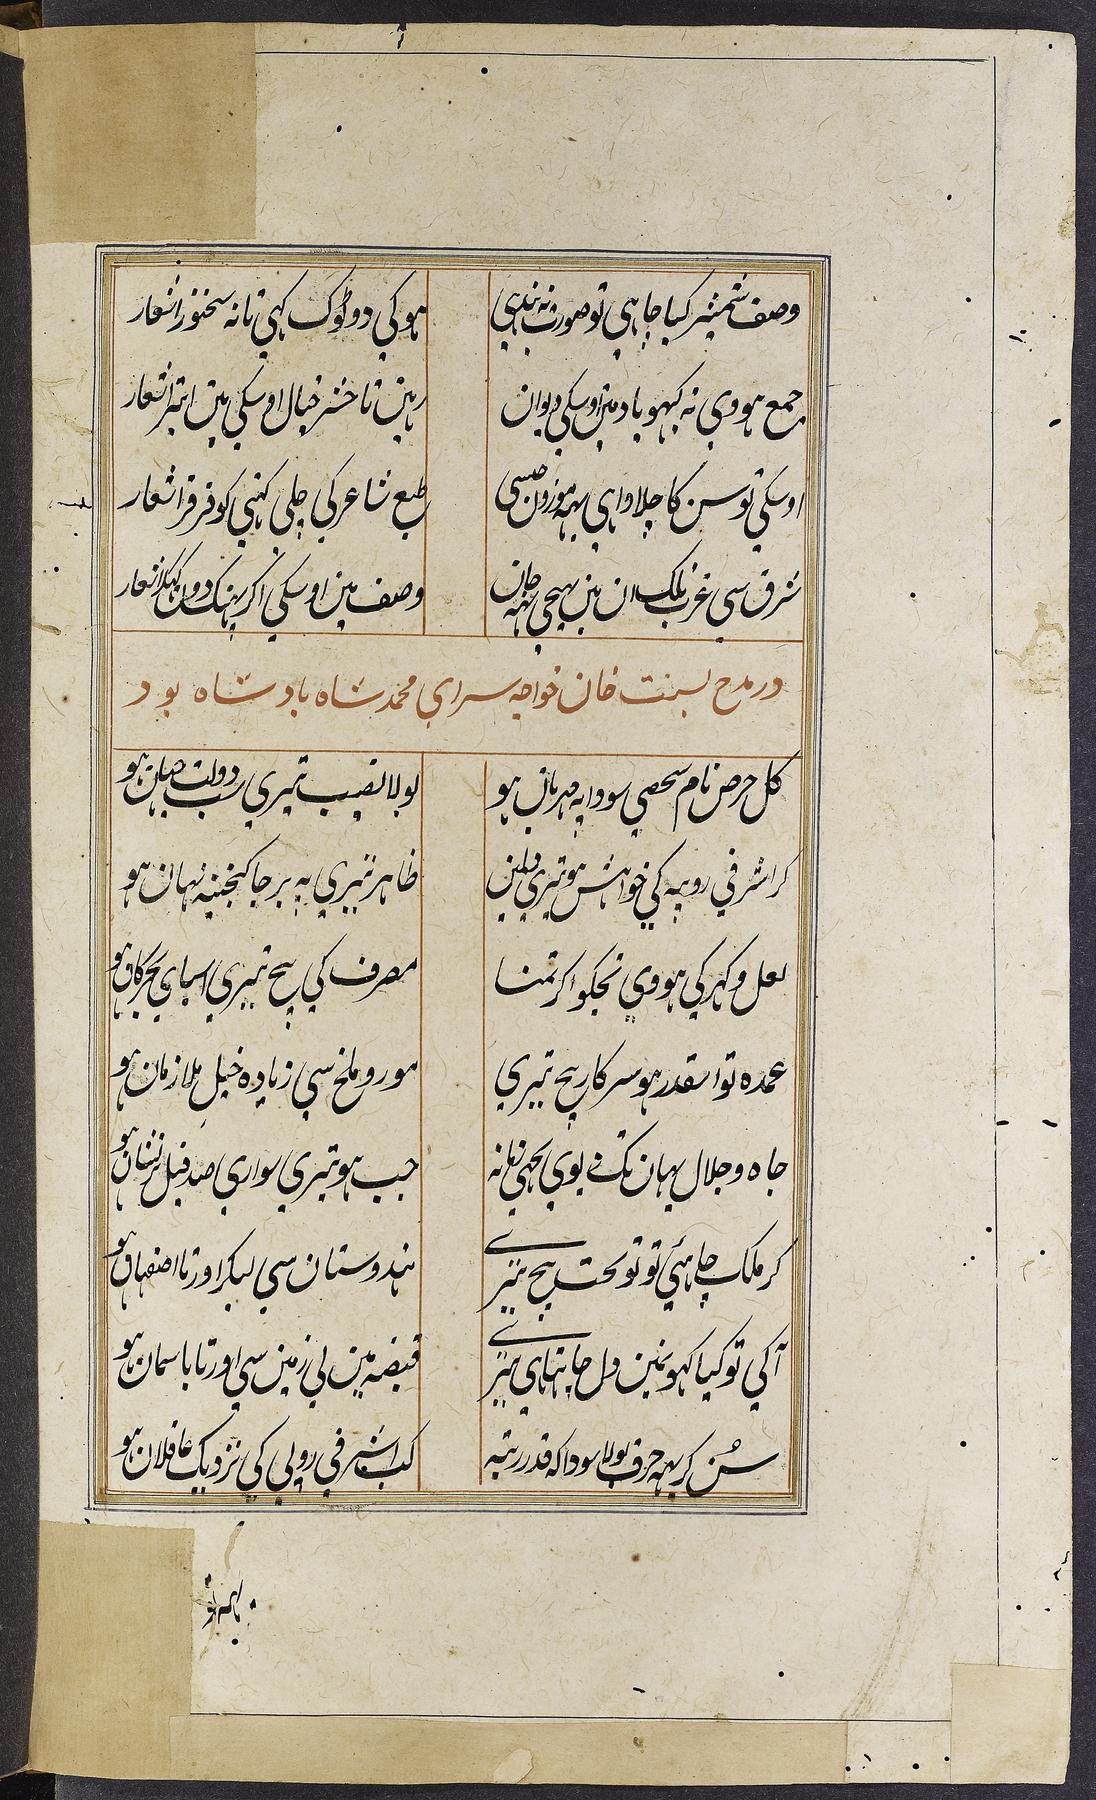 وصف شمشیر کیا چاہی تو صورت نہ بندہی ہو کی دو ٹوک کہی تا نہ سخنور اشعار
جمع ہووی نہ کبہو یاد مین اوسکی دیوان رہین تا حشر خیال اوسکی مین ابتر اشعار
اوسکی توسن کا چلاوا ہی یہہ موزون جسی طبع شاعر کی چلی کہنی کو فرفر اشعار
شرق سی غرب تلک ان مین پہچی وصف مین اوسکی اگر اشعار
در مدح بسنت خان خواجہ سرای محمد شاہ بادشاہ بود
کل حرص نام شخصی سودا پہ مہربان ہو بولا نصیب تیری سب دولت جہان ہو
کر اشرفی روپیہ کی خواہش ہو تیری دلمین ظاہر تیری پہ ہر جا کنجینہ نہان ہو
لعل و کہر کی ہووی تجکو اکر تمنا مصرف کی بیچ تیری بحر کان ہو
عمدہ تو اسقدر ہو سرکار بیچ تیری مور و ملخ سی زیادہ خیل ملازمان ہو
جاہ و جلال یہان تک دیوی تجہی زمانہ جب ہو تیری سواری صد فیل نشان ہو
کر ملک چاہئی تو تو تخت بیچ تیرے ہندوستان سی لیکر اور تا اصفہان ہو
آکی تو کیا کہون مین دل چاہتا ہی میرے قبضہ مین لی زمین سی اور تا باسمان ہو
سُن کر یہہ حرف بولا سودا کہ قدر رتبہ کب اشرفی روپی کی نزدیک عاقلان ہو